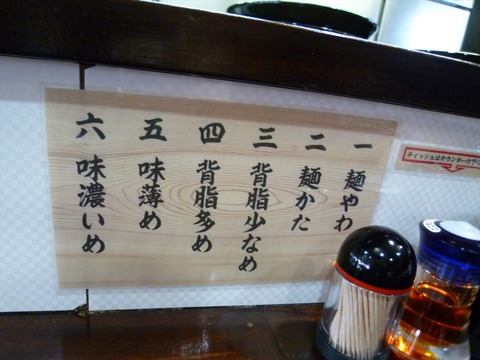 一 麺やわ
二 麺かた
三 背脂少なめ
四 背脂多め
五 味薄め
六 味濃いめ
ティッシュはカウンターの下に